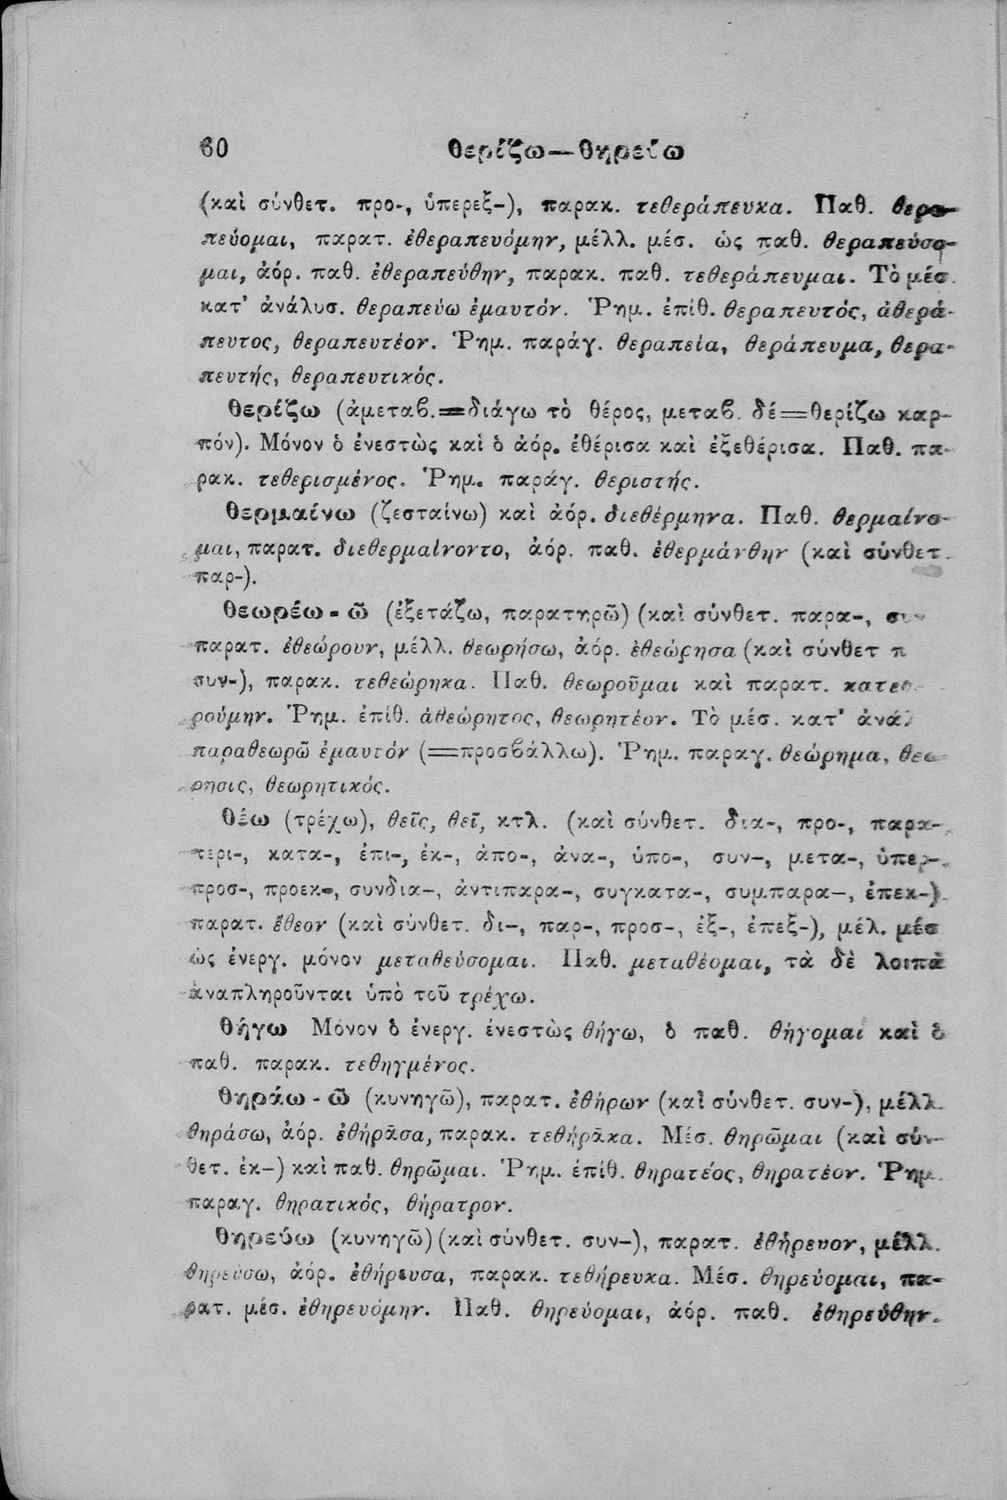 60 θερίζω—θηρεύω
(καὶ σύνθετ. προ-, ὑπερεξ-), παρακ. τεθεράπευκα. Παθ. θερα-
πεύομαι, παρατ. ἐθεραπευόμην, μέλλ. μέσ. ὡς παθ. θεραπεύσο-
μαι, ἀόρ. παθ. ἐθεραπεύθην, παρακ. παθ. τεθεράπευμαι. Τὸ μέσ.
κατ’ ἀνάλυσ. θεραπεύω ἐμαυτόν. Ῥημ. ἐπίθ. θεραπευτός, ἀθερά-
πευτος, θεραπευτέον. Ῥημ. παράγ. θεραπεία, θεράπευμα, θερα-
πευτής, θεραπευτικός.
θερίζω (ἀμεταβ.=διάγω τὸ θέρος, μεταβ. δέ=θερίζω καρ-
πόν). Μόνον ὁ ἐνεστὼς καὶ ὁ ἀόρ. ἐθέρισα καὶ ἐξεθέρισα. Παθ. πα-
ρακ. τεθερισμένος. Ῥημ. παράγ. θεριστής.
θερμαίνω (ζεσταίνω) καὶ ἀόρ. διεθέρμηνα. Παθ. θερμαίνο-
μαι, παρατ. διεθερμαίνοντο, ἀόρ. παθ. ἐθερμάνθην (καὶ σύνθετ.
παρ-).
θεωρέω-ῶ (ἐξετάζω, παρατηρῶ) (καὶ σύνθετ. παρα-,
παρατ. ἐθεώρουν, μέλλ. θεωρήσω, ἀόρ. ἐθεώρησα (καὶ σύνθετ
συν-), παρακ. τεθεώρηκα. Παθ. θεωροῦμαι καὶ παρατ. κατεθ
ρούμην. Ῥημ. ἐπίθ. ἀθεώρητος, θεωρητέον. Τὸ μέσ. κατ’ ἀνάλ
παραθεωρῶ ἐμαυτόν (=προσβάλλω). Ῥημ. παραγ. θεώρημα, θεώ-
ρησις, θεωρητικός.
θέω (τρέχω), θεῖς, θεῖ, κτλ. (καὶ σύνθετ. δια-, προ-, παρα-,
περι-, κατα-, ἐπι-, ἐκ-, ἀπο-, ἀνα-, ὑπο-, συν-, μετα-, ὑπερ-,
προσ-, προεκ-, συνδια-, ἀντιπαρα-, συγκατα-, συμπαρα-, ἐπεκ-)
παρατ. ἔθεον (καὶ σύνθετ. δι-, παρ-, προσ-, ἐξ-, ἐπεξ-), μέλ. μέσ
ὡς ἐνεργ. μόνον μεταθεύσομαι. Παθ. μεταθέομαι, τὰ δὲ λοιπὰ
ἀναπληροῦνται ὑπὸ τοῦ τρέχω.
θήγω Μόνον ὁ ἐνεργ. ἐνεστὼς θήγω, ὁ παθ. θήγομαι καὶ ὁ
παθ. παρακ. τεθηγμένος.
θηράω-ῶ (κυνηγῶ), παρατ. ἐθήρων (καὶ σύνθετ. συν-), μέλλ.
θηράσω, ἀόρ. ἐθήρᾱσα, παρακ. τεθήρᾱκα. Μέσ. θηρῶμαι (καὶ σύν-
θετ. ἐκ-) καὶ παθ. θηρῶμαι. Ῥημ. ἐπίθ. θηρατέος, θηρατέον. Ῥημ.
παραγ. θηρατικός, θήρατρον.
θηρεύω (κυνηγῶ) (καὶ σύνθετ. συν-), παρατ. ἐθήρευον, μέλλ.
θηρεύσω, ἀόρ. ἐθήρευσα, παρακ. τεθήρευκα. Μέσ. θηρεύομαι, πα-
ρατ. μέσ. ἐθηρευόμην. Παθ. θηρεύομαι, ἀόρ. παθ. ἐθηρεύθην.